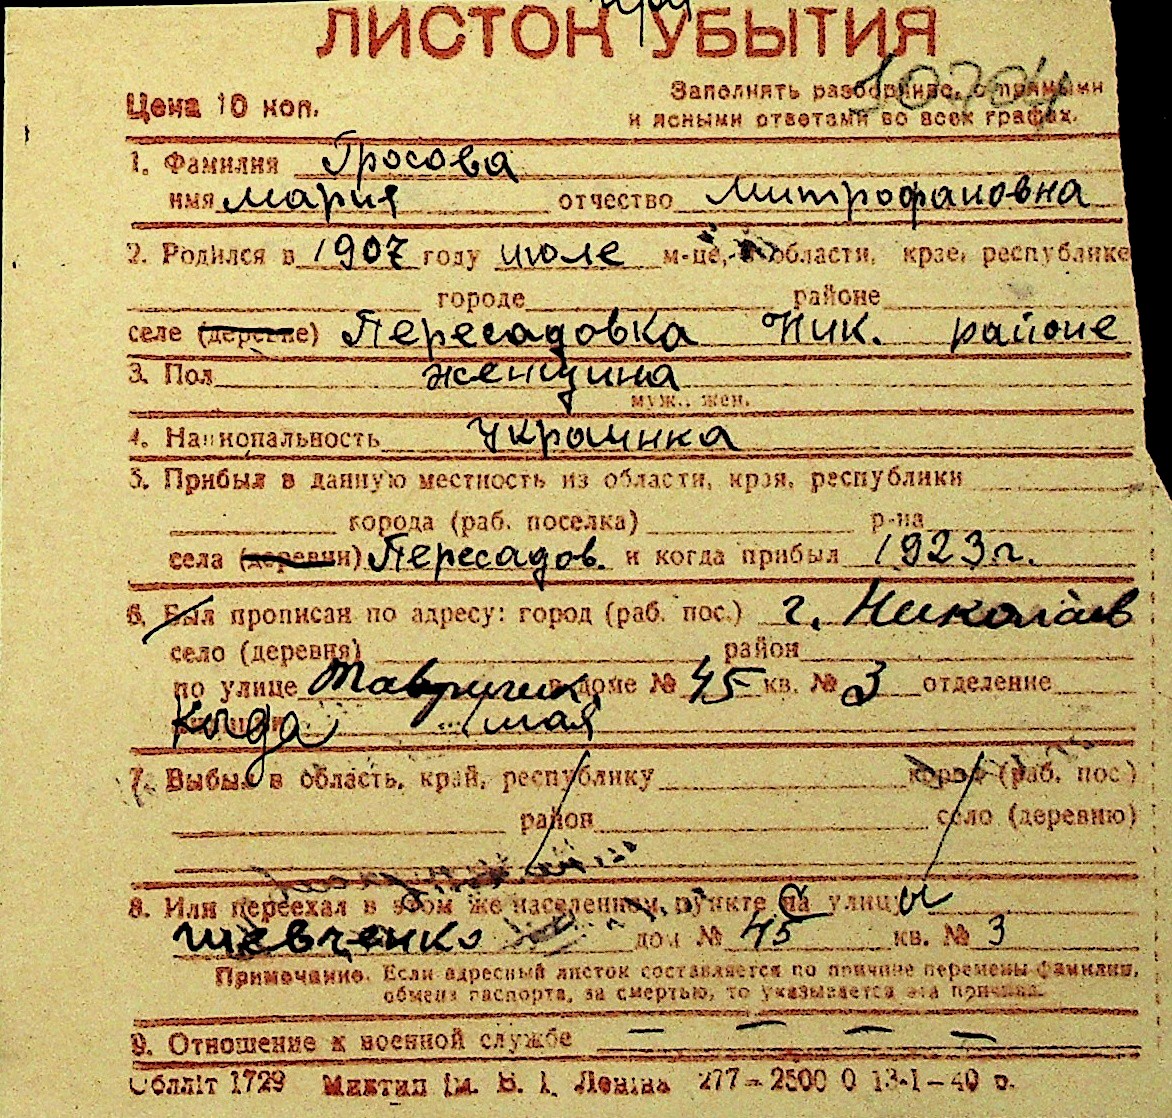 ЛИСТОК УБЫТИЯ
Цена 10 коп.
Заполнять разборчиво, с прямыми
и ясными ответами во всех графах.
1. Фамилия Гросова
имя Мария отчество Митрофановна
2. Родился в 1907 году июле м-це, области, крае, республике
городе районе
селе (деревне) Пересадовка Ник. районе
3. Пол женщина
муж., жен.
4. Национальность украинка
5. Прибыл в данную местность из области, края, республики
города (раб. поселка) р-на
села (деревни) Пересадов. и когда прибыл 1923 г.
6. Был прописан по адресу: город (раб. пос.) г. Николаев
село (деревня) район
по улице Тавричек в доме № 45 кв. № 3 отделение
когда 1 мая
7. Выбыл в область, край, республику город (раб. пос.)
район село (деревню)
8. Или переехал в этом же населенном пункте на улицу
Шевченко дом № 45 кв. № 3
Примечание. Если адресный листок составляется по причине перемены фамилии,
обмена паспорта, за смертью, то указывается эта причина.
9. Отношение к военной службе — — — —
Облліт 1729 Миктип ім. В. І. Леніна 277 – 2500 0 13-1-40 р.